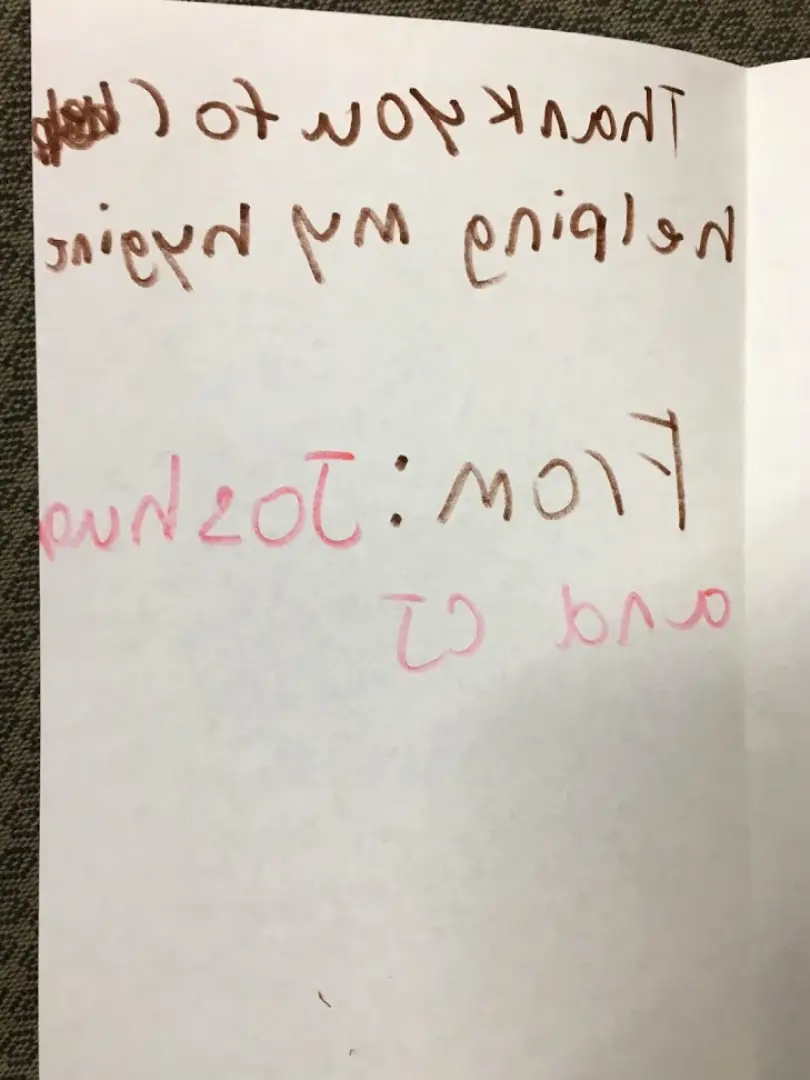 Thank you to (
helping my hygine
From: Joshua
and CJ